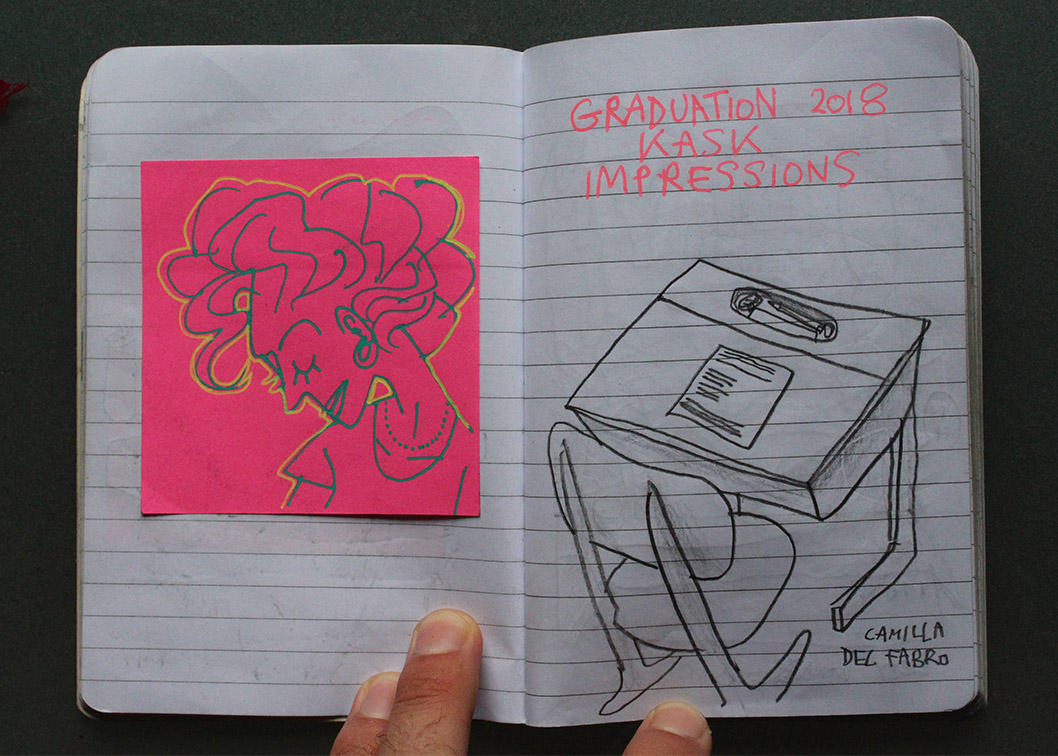 GRADUATION 2018
KASK
IMPRESSIONS
CAMILLA
DEL FABRO